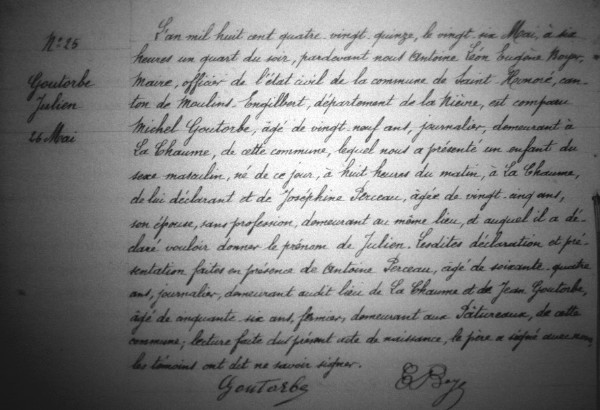 N° 25
Goutorbe
Julien
26 Mai
L'an mil huit cent quatre-vingt-quinze, le vingt-six Mai, à six
heures un quart du soir, pardevant nous Antoine Léon Eugène Boyer,
Maire, officier de l'état civil de la commune de Saint Honoré, can-
ton de Moulins-Engilbert, département de la Nièvre, est comparu
Michel Goutorbe, âgé de vingt-neuf ans, journalier, demeurant à
La Chaume, de cette commune, lequel nous a présenté un enfant du
sexe masculin, né de ce jour, à huit heures du matin, à La Chaume,
de lui déclarant et de Joséphine Perceau, âgée de vingt-cinq ans,
son épouse, sans profession, demeurant au même lieu, et auquel il a dé-
claré vouloir donner le prénom de Julien. Lesdites déclaration et pré-
sentation faites en présence de Antoine Perceau, âgé de soixante-quatre
ans, journalier, demeurant audit lieu de La Chaume et de Jean Goutorbe,
âgé de cinquante-six ans, fermier, demeurant aux Pâtureaux, de cette
commune; lecture faite du présent acte de naissance, le père a signé avec nous,
les témoins ont dit ne savoir signer.
Goutorbe